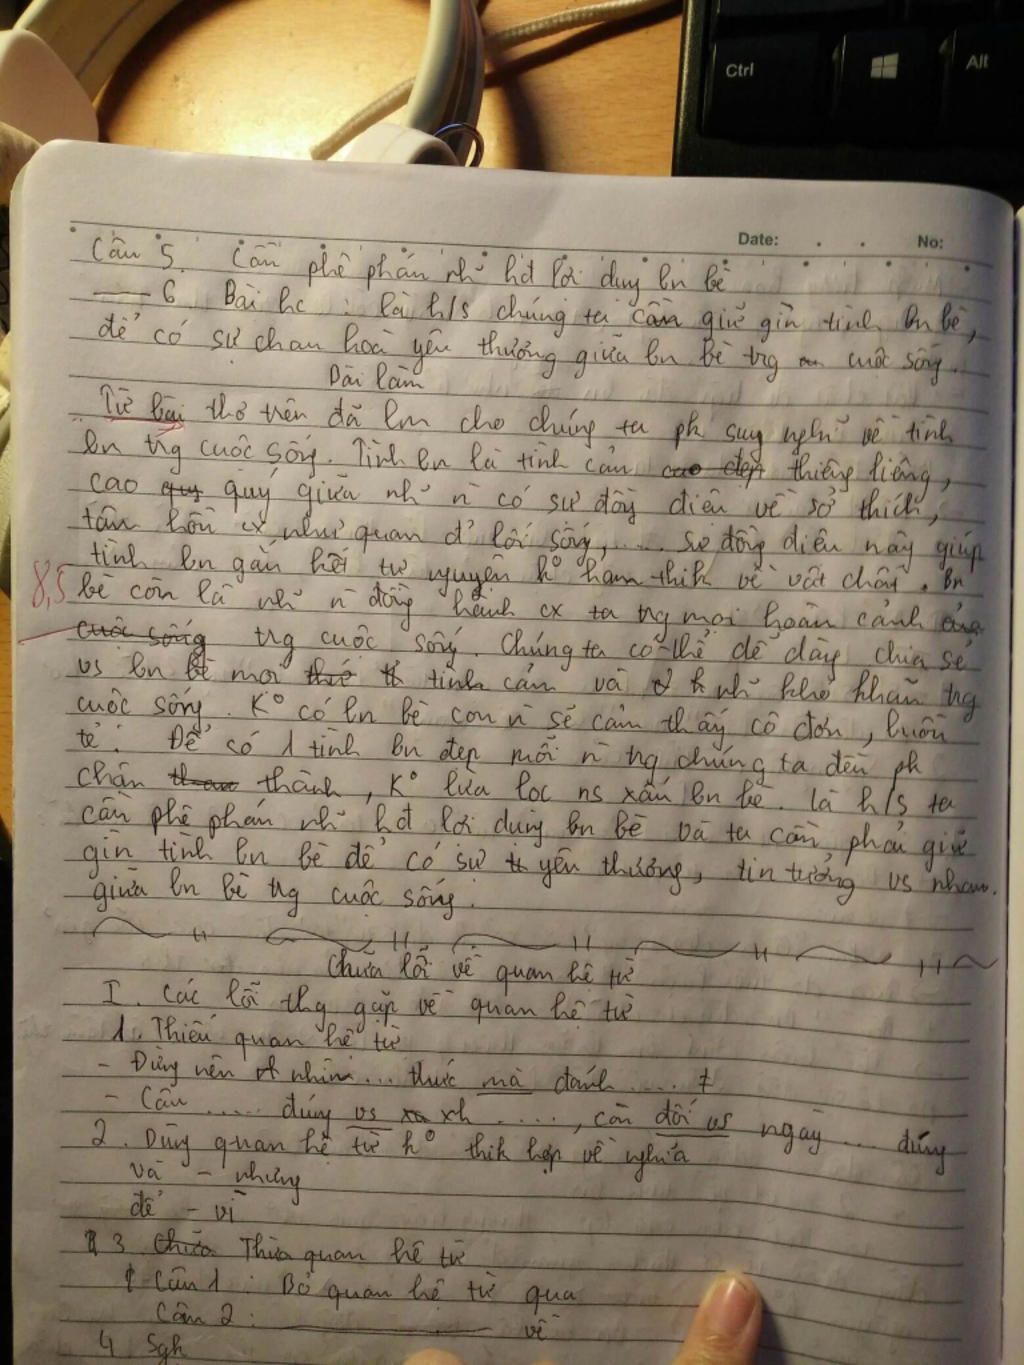 Ctrl
Alt
Date: . . No:
Câu 5. Cần phê phán nhữ hđ lợi dụng bn bè
—— 6 Bài hc : là h/s chúng ta cần giữ gìn tình bn bè,
để có sự chan hoà yêu thương giữa bn bè trg cuộc sống.
Bài làm
Từ bài thơ trên đã lm cho chúng ta ph suy nghĩ về tình
bn trg cuộc sống. Tình bn là tình cảm cao đẹp thiêng liêng,
cao quý giữa nhữ n có sự đồng điệu về sở thích,
tâm hồn cx như quan đ lối sống, .... sự đồng điệu này giúp
tình bn gắn kết tự nguyện k° ham thik về vật chất. Bn
8,5
bè còn là nhữ n đồng hành cx ta trg mọi hoàn cảnh
cuộc sống trg cuộc sống. Chúng ta có thể dễ dàng chia sẻ
vs bn bè mọi tình cảm và nhữ khó khăn trg
cuộc sống. K° có bn bè con n sẽ cảm thấy cô đơn, buồn
tẻ. Để có 1 tình bn đẹp mỗi n trg chúng ta đều ph
chân thành, k° lừa lọc ns xấu bn bè. Là h/s ta
cần phê phán nhữ hđ lợi dụng bn bè và ta cần phải giữ
gìn tình bn bè để có sự yêu thương, tin tưởng vs nhau.
giữa bn bè trg cuộc sống.
Chữa lỗi về quan hệ từ
I. Các lỗi thg gặp về quan hệ từ
1. Thiếu quan hệ từ
- Đừng nên nhìn ... thức mà đánh .... ≠
- Câu ..... đúng vs xh ....., còn đối vs ngày ... đúng
2. Dùng quan hệ từ k° thik hợp về nghĩa
và - nhưng
để - vì
3 Thừa quan hệ từ
Câu 1 : Bỏ quan hệ từ qua
Câu 2 : ———— về
4 Sgk